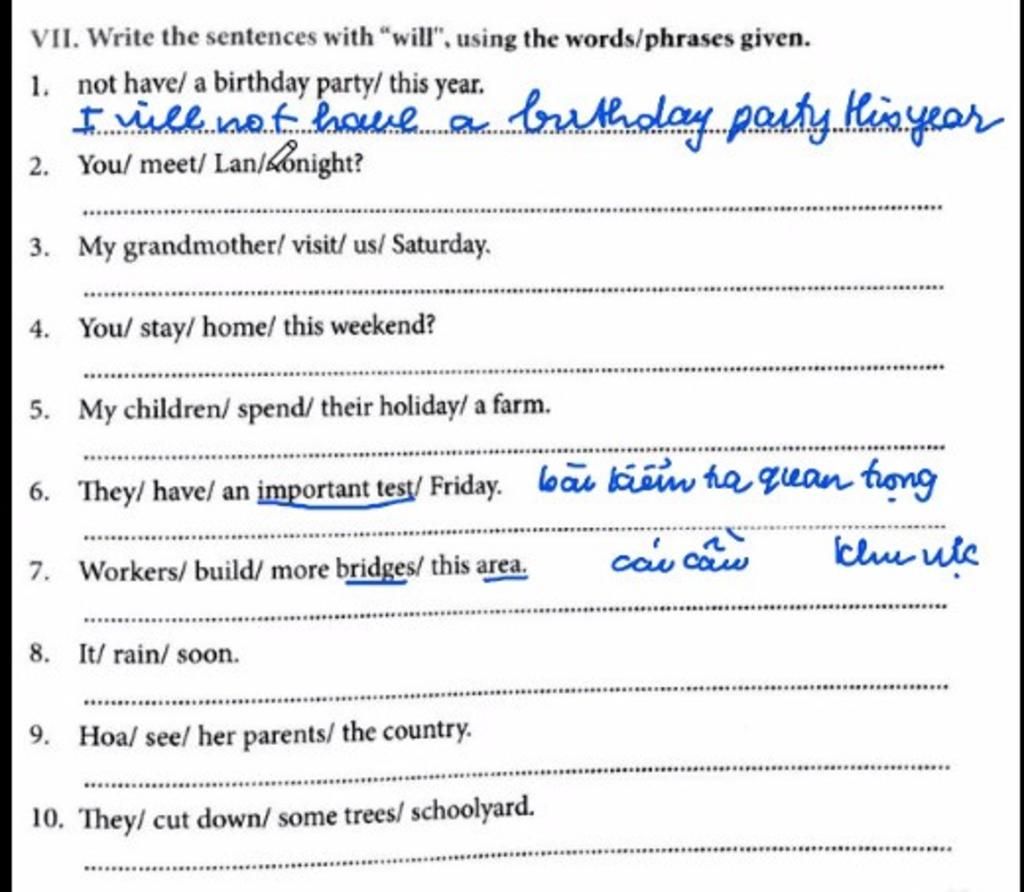 VII. Write the sentences with “will”, using the words/phrases given.
1. not have/ a birthday party/ this year.
I will not have a birthday party this year
2. You/ meet/ Lan/ tonight?
3. My grandmother/ visit/ us/ Saturday.
4. You/ stay/ home/ this weekend?
5. My children/ spend/ their holiday/ a farm.
6. They/ have/ an important test/ Friday. bài kiểm tra quan trọng
7. Workers/ build/ more bridges/ this area. cái cầu khu vực
8. It/ rain/ soon.
9. Hoa/ see/ her parents/ the country.
10. They/ cut down/ some trees/ schoolyard.